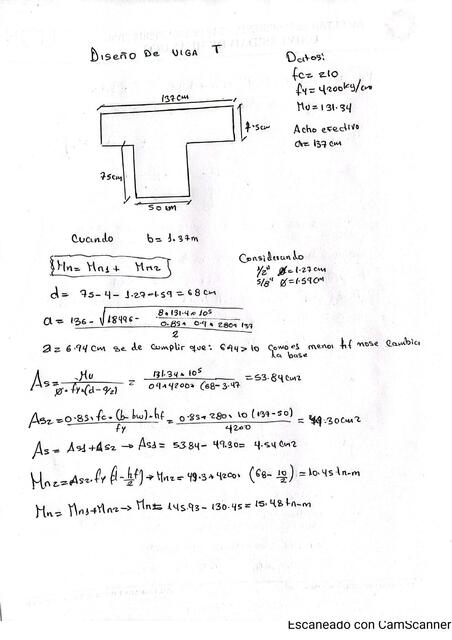 Diseño De viga T
Datos:
fc= 210
fy= 4200kg/cm
Mu=131.34
Acho efectivo
a= 137 cm
137cm
75cm
50 cm
Cuando b= 1.37m
Mn= Mn1 + Mn2
Considerando
1/2" Ø=1.27cm
5/8" Ø=1.59cm
d= 75-4-1.27-1.59=68cm
a= 136-
2
a= 6.94 cm se de cumplir que: 6.94>10 como es menor hf nose cambia
la base
As= Mu / Ø*fy*(d-a/2) = 131.34*10⁵ / 0.9*4200*(68-3.47 = 53.84cm2
As2=0.85*fc*(b-bw)*hf / fy = 0.85*280*10(137-50) / 4200 = 49.30cm2
As= As1+As2 → As1= 53.84- 49.30= 4.54cm2
Mn2=As2*fy(d-hf/2)→Mn2=49.3*4200*(68-10/2)=10.45tn-m
Mn= Mn1+Mn2→ Mn1=145.93-130.45=15.48tn-m
Escaneado con CamScanner